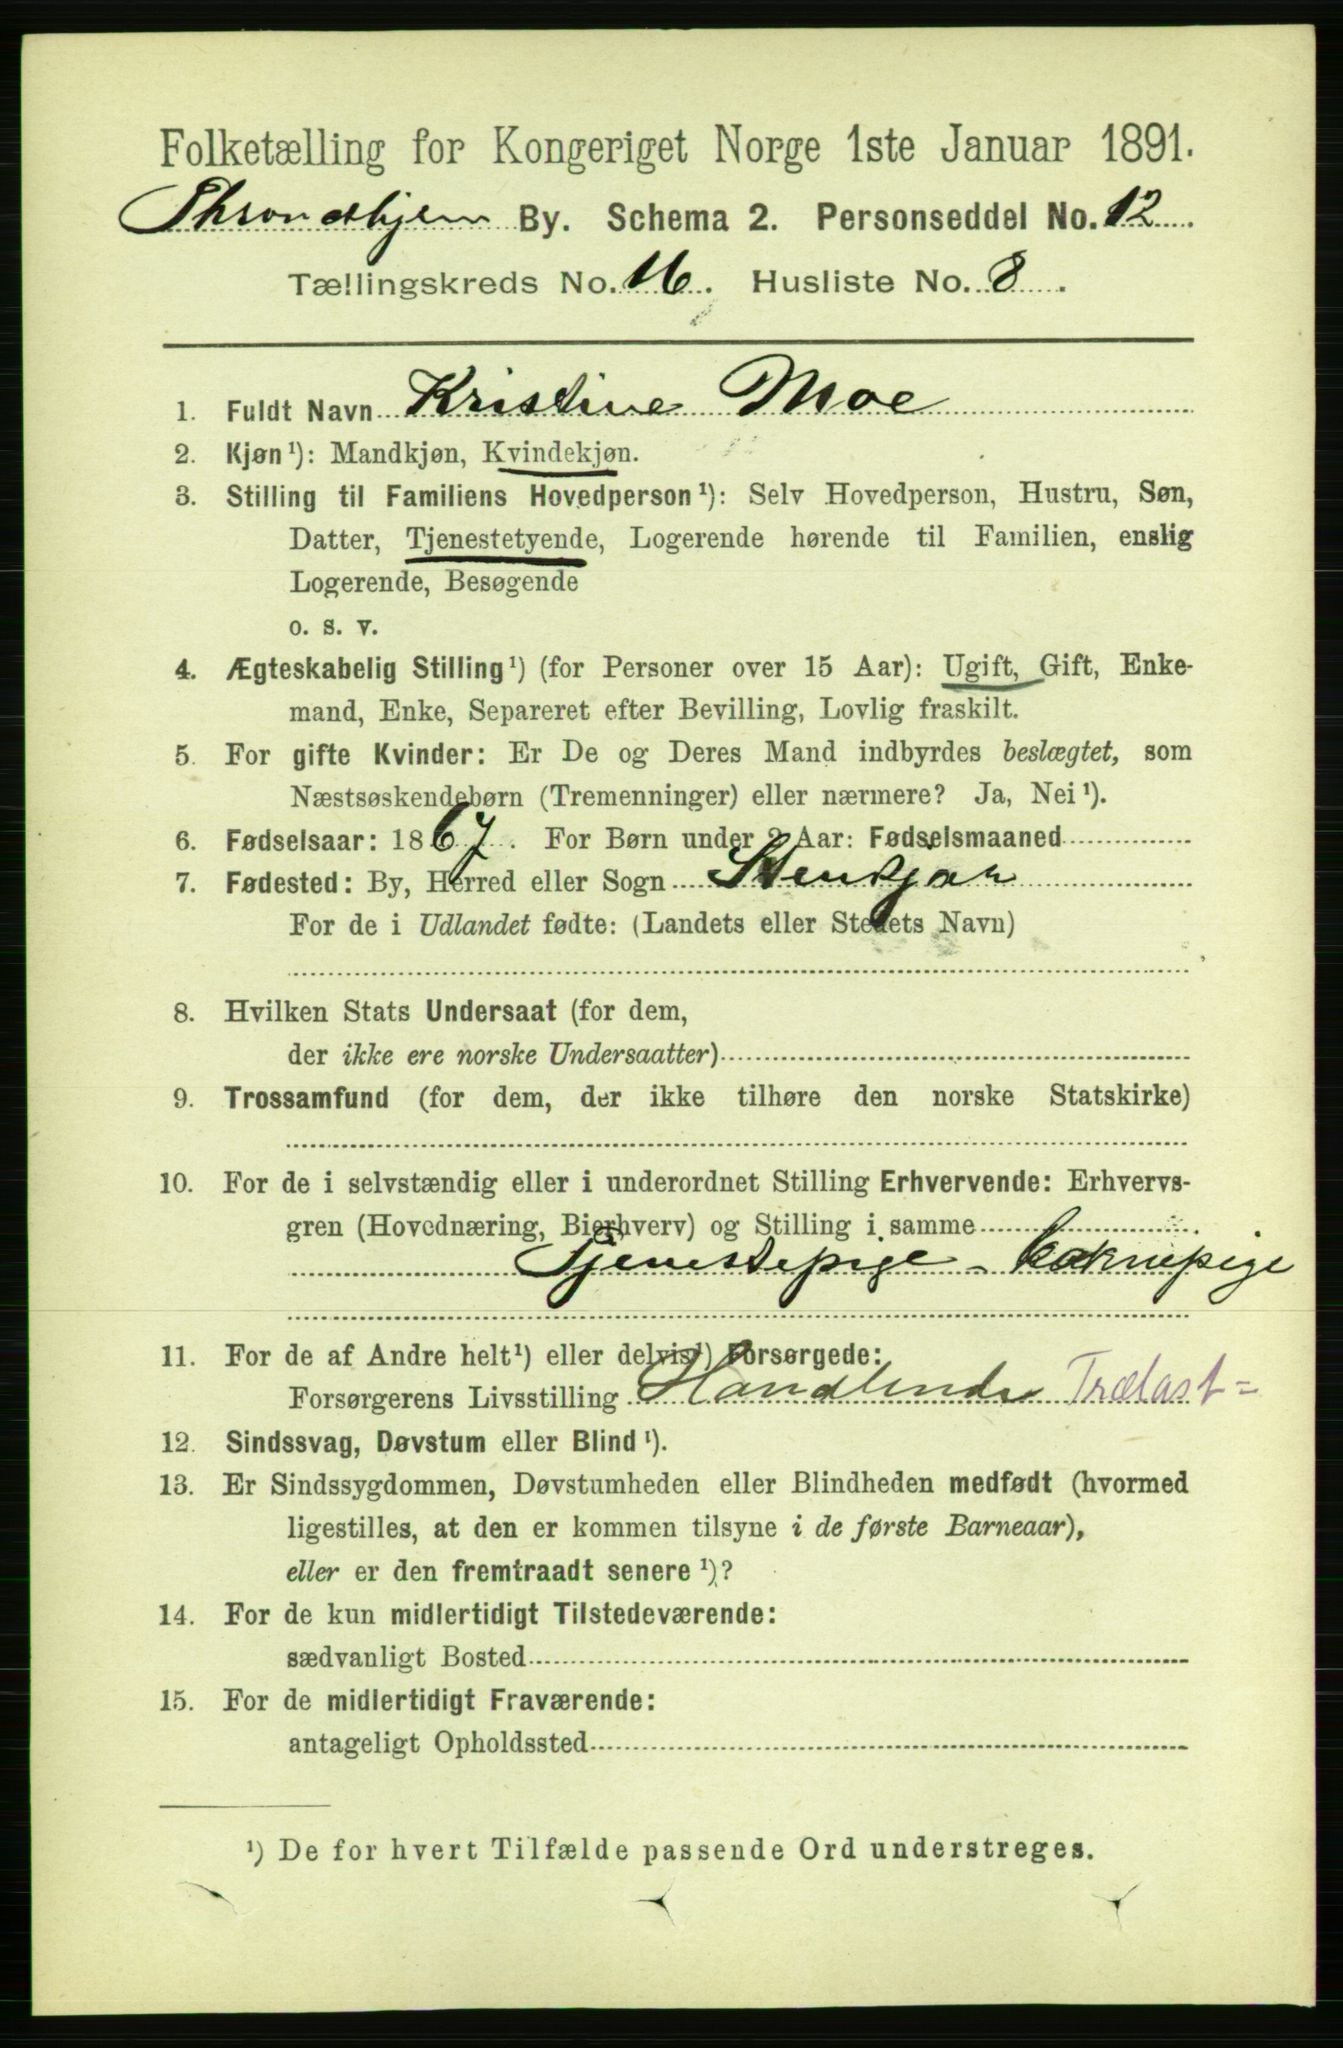 Folketælling for Kongeriget Norge 1ste Januar 1891.
Throndhjem By. Schema 2. Personseddel No. 12
Tællingskreds No. 16. Husliste No. 8.
1. Fuldt Navn Kristine Moe
2. Kjøn¹): Mandkjøn, Kvindekjøn.
3. Stilling til Familiens Hovedperson¹): Selv Hovedperson, Hustru, Søn,
Datter, Tjenestetyende, Logerende hørende til Familien, enslig
Logerende, Besøgende
o. s. v.
4. Ægteskabelig Stilling¹) (for Personer over 15 Aar): Ugift, Gift, Enke-
mand, Enke, Separeret efter Bevilling, Lovlig fraskilt.
5. For gifte Kvinder: Er De og Deres Mand indbyrdes beslægtet, som
Næstsøskendebørn (Tremenninger) eller nærmere? Ja, Nei¹).
6. Fødselsaar: 1867. For Børn under 2 Aar: Fødselsmaaned
7. Fødested: By, Herred eller Sogn Stenkjær
For de i Udlandet fødte: (Landets eller Stedets Navn)
8. Hvilken Stats Undersaat (for dem,
der ikke ere norske Undersaatter)
9. Trossamfund (for dem, der ikke tilhøre den norske Statskirke)
10. For de i selvstændig eller i underordnet Stilling Erhvervende: Erhvervs-
gren (Hovednæring, Bierhverv) og Stilling i samme
Tjenestepige - kokkepige
11. For de af Andre helt¹) eller delvis¹) Forsørgede:
Forsørgerens Livsstilling Handlende Trælast=
12. Sindssvag, Døvstum eller Blind¹).
13. Er Sindssygdommen, Døvstumheden eller Blindheden medfødt (hvormed
ligestilles, at den er kommen tilsyne i de første Barneaar),
eller er den fremtraadt senere¹)?
14. For de kun midlertidigt Tilstedeværende:
sædvanligt Bosted
15. For de midlertidigt Fraværende:
antageligt Opholdssted
¹) De for hvert Tilfælde passende Ord understreges.